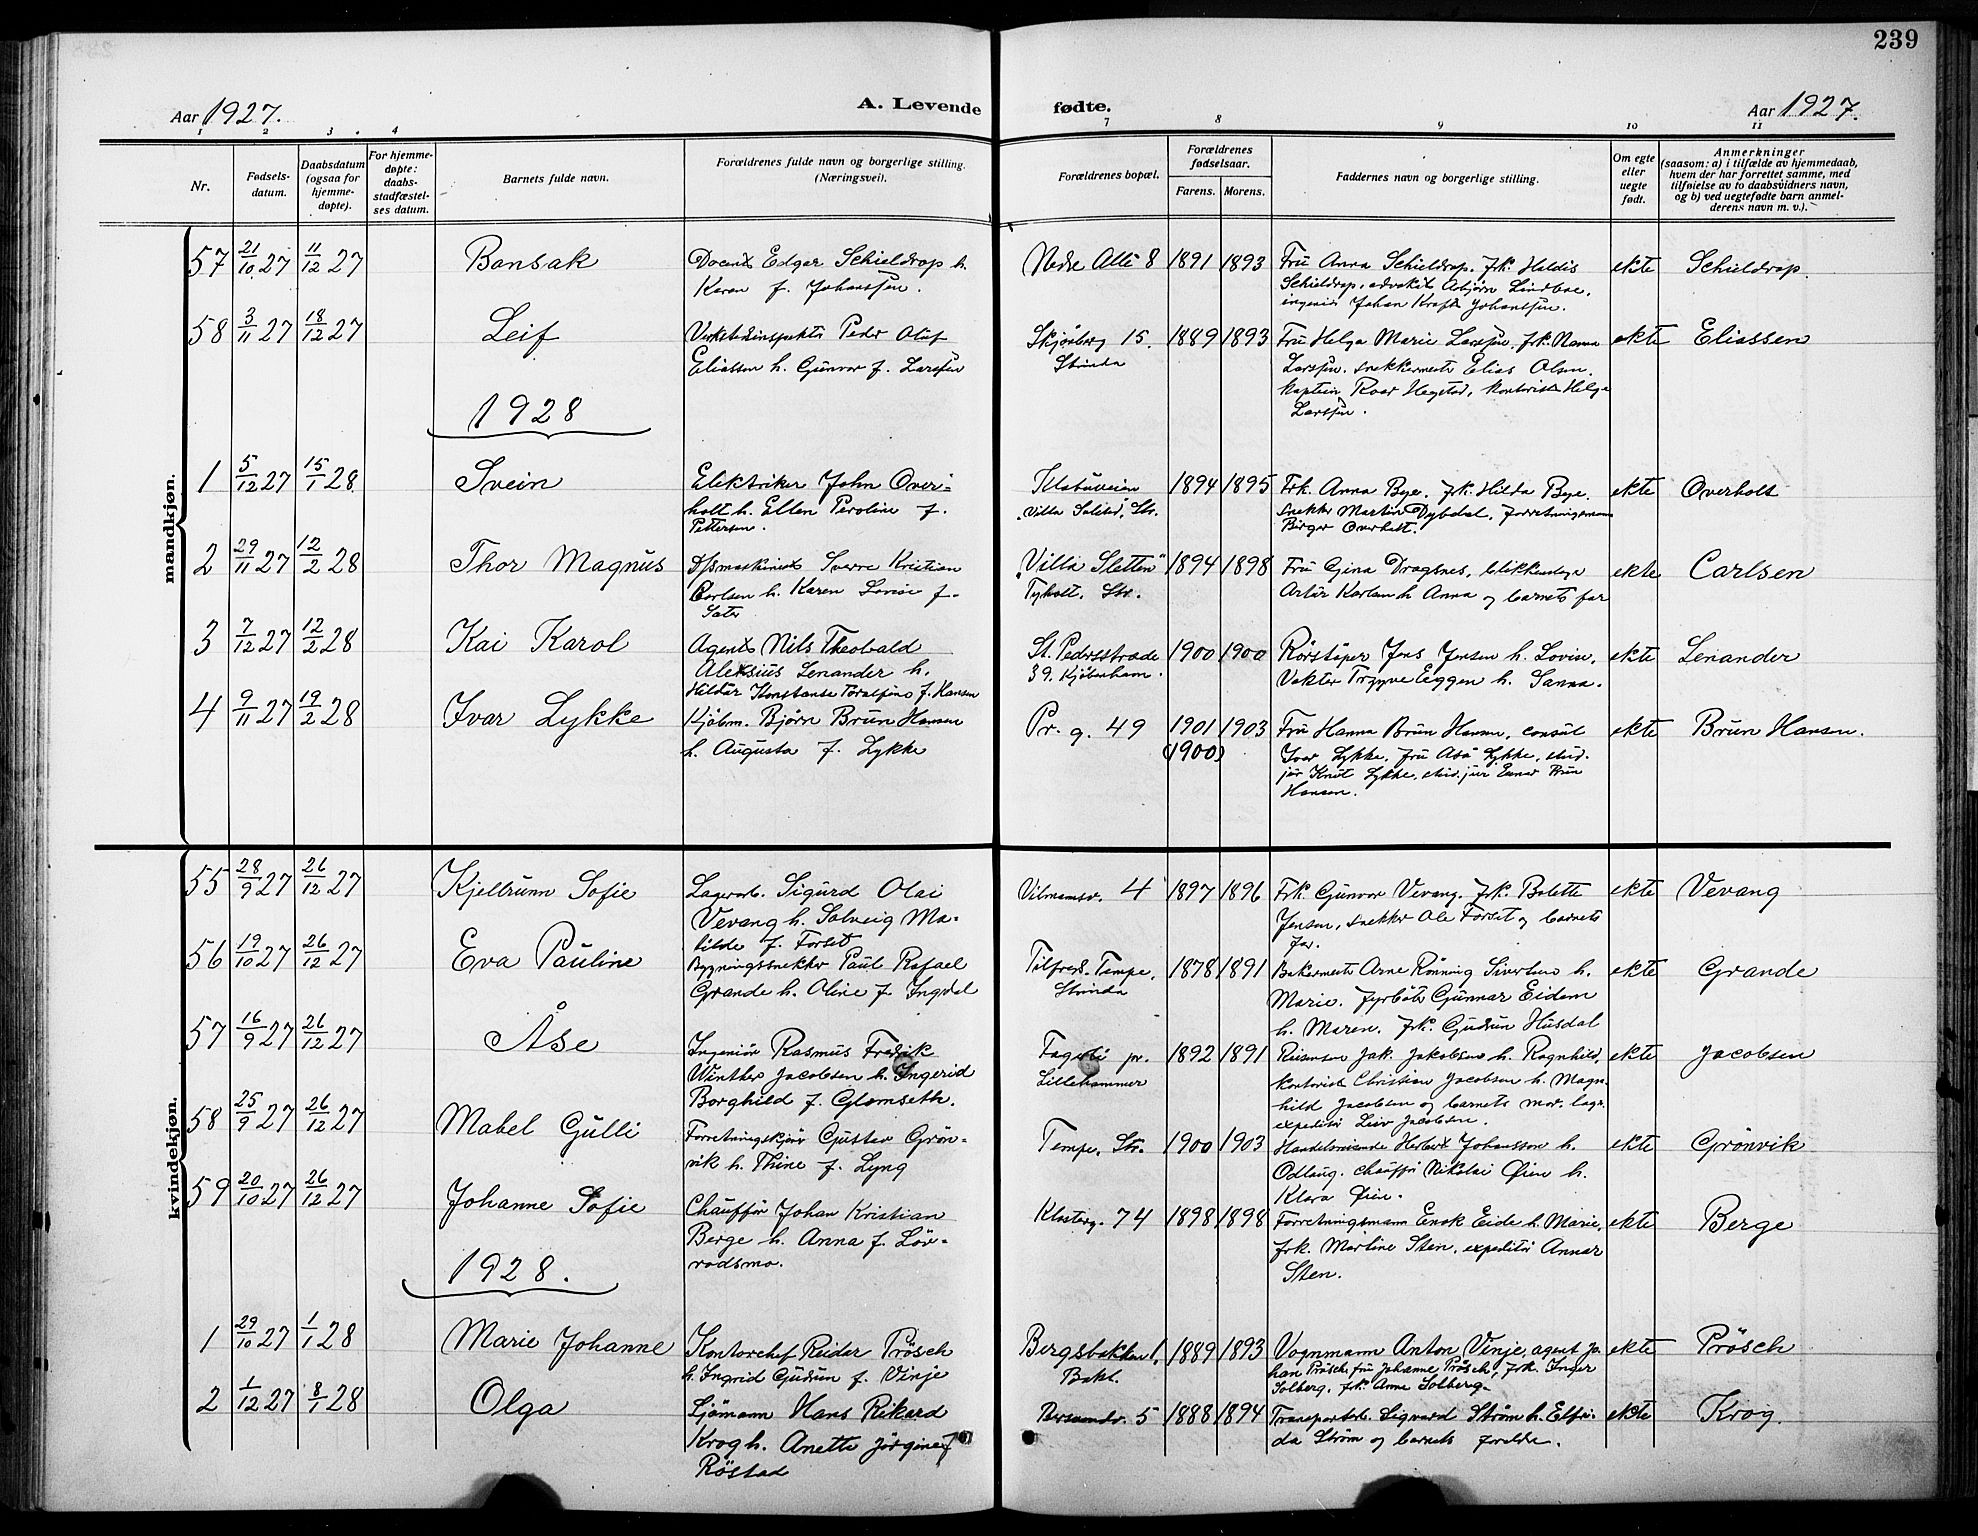 239
Aar 1927. A. Levende fødte. Aar 1927.
1 2 3 4 7 8 9 10 11
Nr.
Fødsels-
datum.
Daabsdatum
(ogsaa for
hjemme-
døpte).
For hjemme-
døpte:
daabs-
stadfæstel-
ses datum.
Barnets fulde navn.
Forældrenes fulde navn og borgerlige stilling.
(Næringsvei).
Forældrenes bopæl.
Forældrenes
fødselsaar.
Farens. Morens.
Faddernes navn og borgerlige stilling.
Om egte
eller
uegte
født.
Anmerkninger
(saasom: a) i tilfælde av hjemmedaab,
hvem der har forrettet samme, med
tilføielse av to daabsvidners navn,
og b) ved uegtefødte barn anmel-
derens navn m. v.).
mandkjøn.
57 21/10 27 11/12 27 Bonsak
Docent Edgar Schieldrop h.
Karen f. Johanssen.
Nedre Alle 8 1891 1893
Fru Anna Schieldrop. frk. Haldis
Schieldrop, advokat Asbjørn Lindboe,
ingeniør Johan Kraft Johanssen.
ekte Schieldrop.
58 3/11 27 18/12 27 Leif
Verkstedinspektør Peder Olaf
Eliassen h. Gunvor f. Larssen
Skjønberg 15.
Strinda
1889 1893
Fru Helga Marie Larssen, frk. Nanna
Larssen. snekkermester Elias Olsen.
kaptein Roar Hegstad, kontorist Helge
Larssen.
ekte Eliassen
1928
1 5/12 27 15/1 28 Svein
Elektriker John Over-
holt h. Ellen Peroline f.
Pettersen.
Klæbuveien
Villa Solstad, Str.
1894 1895
Frk. Anna Bye. frk. Hilda Bye.
snekker Martin Dybdal, forretningsmann
Birger Overholt.
ekte Overholt
2 29/11 27 12/2 28 Thor Magnus
D/smaskinist Sverre Kristian
Carlsen h. Karen Lovise f.
Sæter
"Villa Sletten"
Tyholt. Str.
1894 1898
Fru Gina Dragsnes, blikkenslager
Artur Karlsen h. Anna og barnets far
ekte Carlsen
3 7/12 27 12/2 28 Kai Karol
Agent Nils Theobald
Aleksius Lenander h.
Hildur Konstanse Toralfine f. Hansen
St. Pedersstræde
39. Kjøbenhavn.
1900 1900
Rørstøper Jens Jensen h. Lovise.
Vakter Trygve Eggen h. Sanna.
ekte Lenander
4 9/11 27 19/2 28 Ivar Lykke
Kjøbm. Bjørn Brun Hansen
h. Augusta f. Lykke
Pr. g. 49 1901 1903
(1900)
Fru Hanna Brun Hansen, consul
Ivar Lykke, fru Åsa Lykke, stud.
jur Knut Lykke, stud. jur Einar Brun
Hansen.
ekte Brun Hansen.
kvindekjøn.
55 28/9 27 26/12 27 Kjellrunn Sofie
Lagerarb. Sigurd Olai
Vevang h. Solveig Ma-
tilde f. Forset
Vilmannsv. 4 1897 1896
Frk. Gunvor Vevang. frk. Bolette
Jensen, snekker Ole Forset og barnets
far.
ekte Vevang
56 19/10 27 26/12 27 Eva Pauline
Bygningssnekker Paul Rafael
Grande h. Oline f. Ingdal
Tilfreds. Tempe,
Strinda
1878 1891
Bakermester Arne Rønning Sivertsen h.
Marie. fyrbøter Gunnar Eidem
h. Maren. frk. Gudrun Husdal
ekte Grande
57 16/9 27 26/12 27 Åse
Ingeniør Rasmus Fredrik
Winther Jacobsen h. Ingerid
Borghild f. Glomseth.
Fagerli pr.
Lillehammer
1892 1891
Reisensen Jak. Jakobsen h. Ragnhild,
kontorist Christian Jacobsen h. Magn-
hild Jacobsen og barnets mor. lagr.
expeditør Leiv Jacobsen.
ekte Jacobsen
58 25/9 27 26/12 27 Mabel Gulli
Forretningskjør Gustav Grøn-
vik h. Thine f. Lyng
Tempe. Str. 1900 1903
Handelsreisende Herbert Johansson h.
Odlaug. chauffør Nikolai Øien h.
Klara Øien.
ekte Grønvik
59 20/10 27 26/12 27 Johanne Sofie
Chauffør Johan Kristian
Berge h. Anna f. Lør-
vodsmo.
Klosterg. 74 1898 1898
Forretningsmann Enok Eide h. Marie,
frk. Martine Sten, expeditør Annar
Sten.
ekte Berge
1928.
1 29/10 27 1/1 28 Marie Johanne
Kontorchef Reidar Prøsch
h. Ingrid Gudrun f. Vinje
Bergsbakken 1,
Bakl.
1889 1893
Vognmann Anton Vinje, agent Jo-
han Prøsch fru Johanne Prøsch, frk. Inger
Solberg. frk. Anne Solberg.
ekte Prøsch
2 1/12 27 8/1 28 Olga
Sjømann Hans Rikard
Krog h. Anette Jørgine f
Røstad
5 1888 1894
Transportarb. Sigvard Strøm h. Elfri-
da Strøm og barnets foreldre.
ekte Krog.